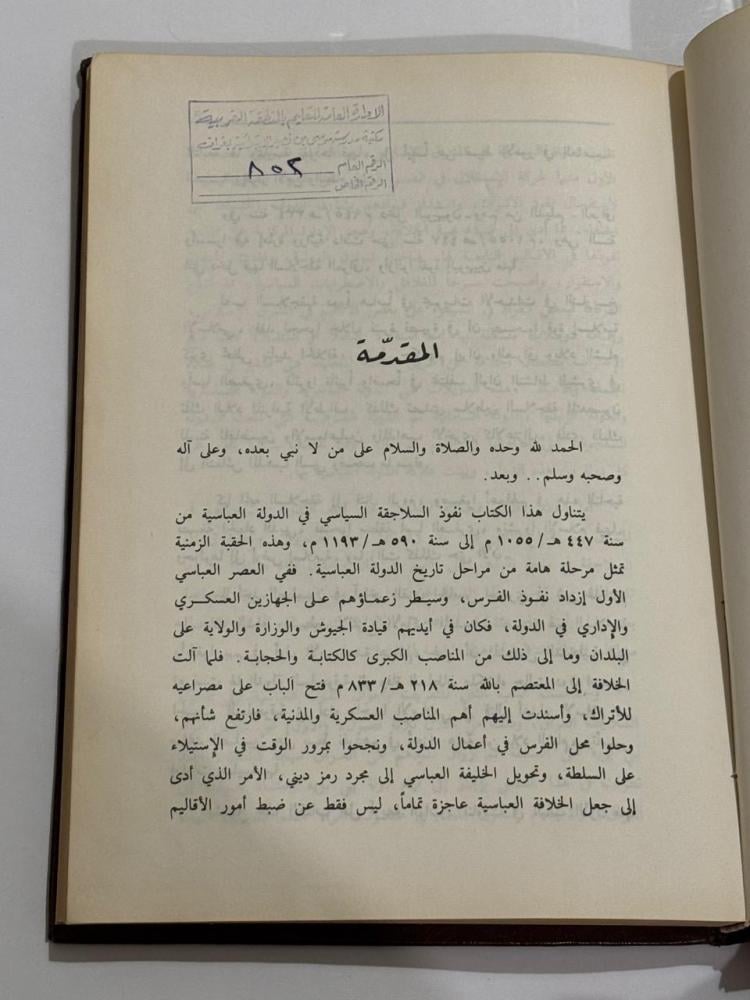 الادارة العامة للتعليم بالمنطقة الغربية
مكتبة مدرسة موسى بن نصير
الرقم العام ٨٥٢
الرقم الخاص
المقدّمة
الحمد لله وحده والصلاة والسلام على من لا نبي بعده، وعلى آله
وصحبه وسلم.. وبعد.
يتناول هذا الكتاب نفوذ السلاجقة السياسي في الدولة العباسية من
سنة ٤٤٧ هـ/١٠٥٥ م إلى سنة ٥٩٠ هـ/١١٩٣ م، وهذه الحقبة الزمنية
تمثل مرحلة هامة من مراحل تاريخ الدولة العباسية. ففي العصر العباسي
الأول إزداد نفوذ الفرس، وسيطر زعماؤهم على الجهازين العسكري
والإداري في الدولة، فكان في أيديهم قيادة الجيوش والوزارة والولاية على
البلدان وما إلى ذلك من المناصب الكبرى كالكتابة والحجابة. فلما آلت
الخلافة إلى المعتصم بالله سنة ٢١٨ هـ/٨٣٣ م فتح الباب على مصراعيه
للأتراك، وأسندت إليهم أهم المناصب العسكرية والمدنية، فارتفع شأنهم،
وحلوا محل الفرس في أعمال الدولة، ونجحوا بمرور الوقت في الإستيلاء
على السلطة، وتحويل الخليفة العباسي إلى مجرد رمز ديني، الأمر الذي أدى
إلى جعل الخلافة العباسية عاجزة تماماً، ليس فقط عن ضبط أمور الأقاليم